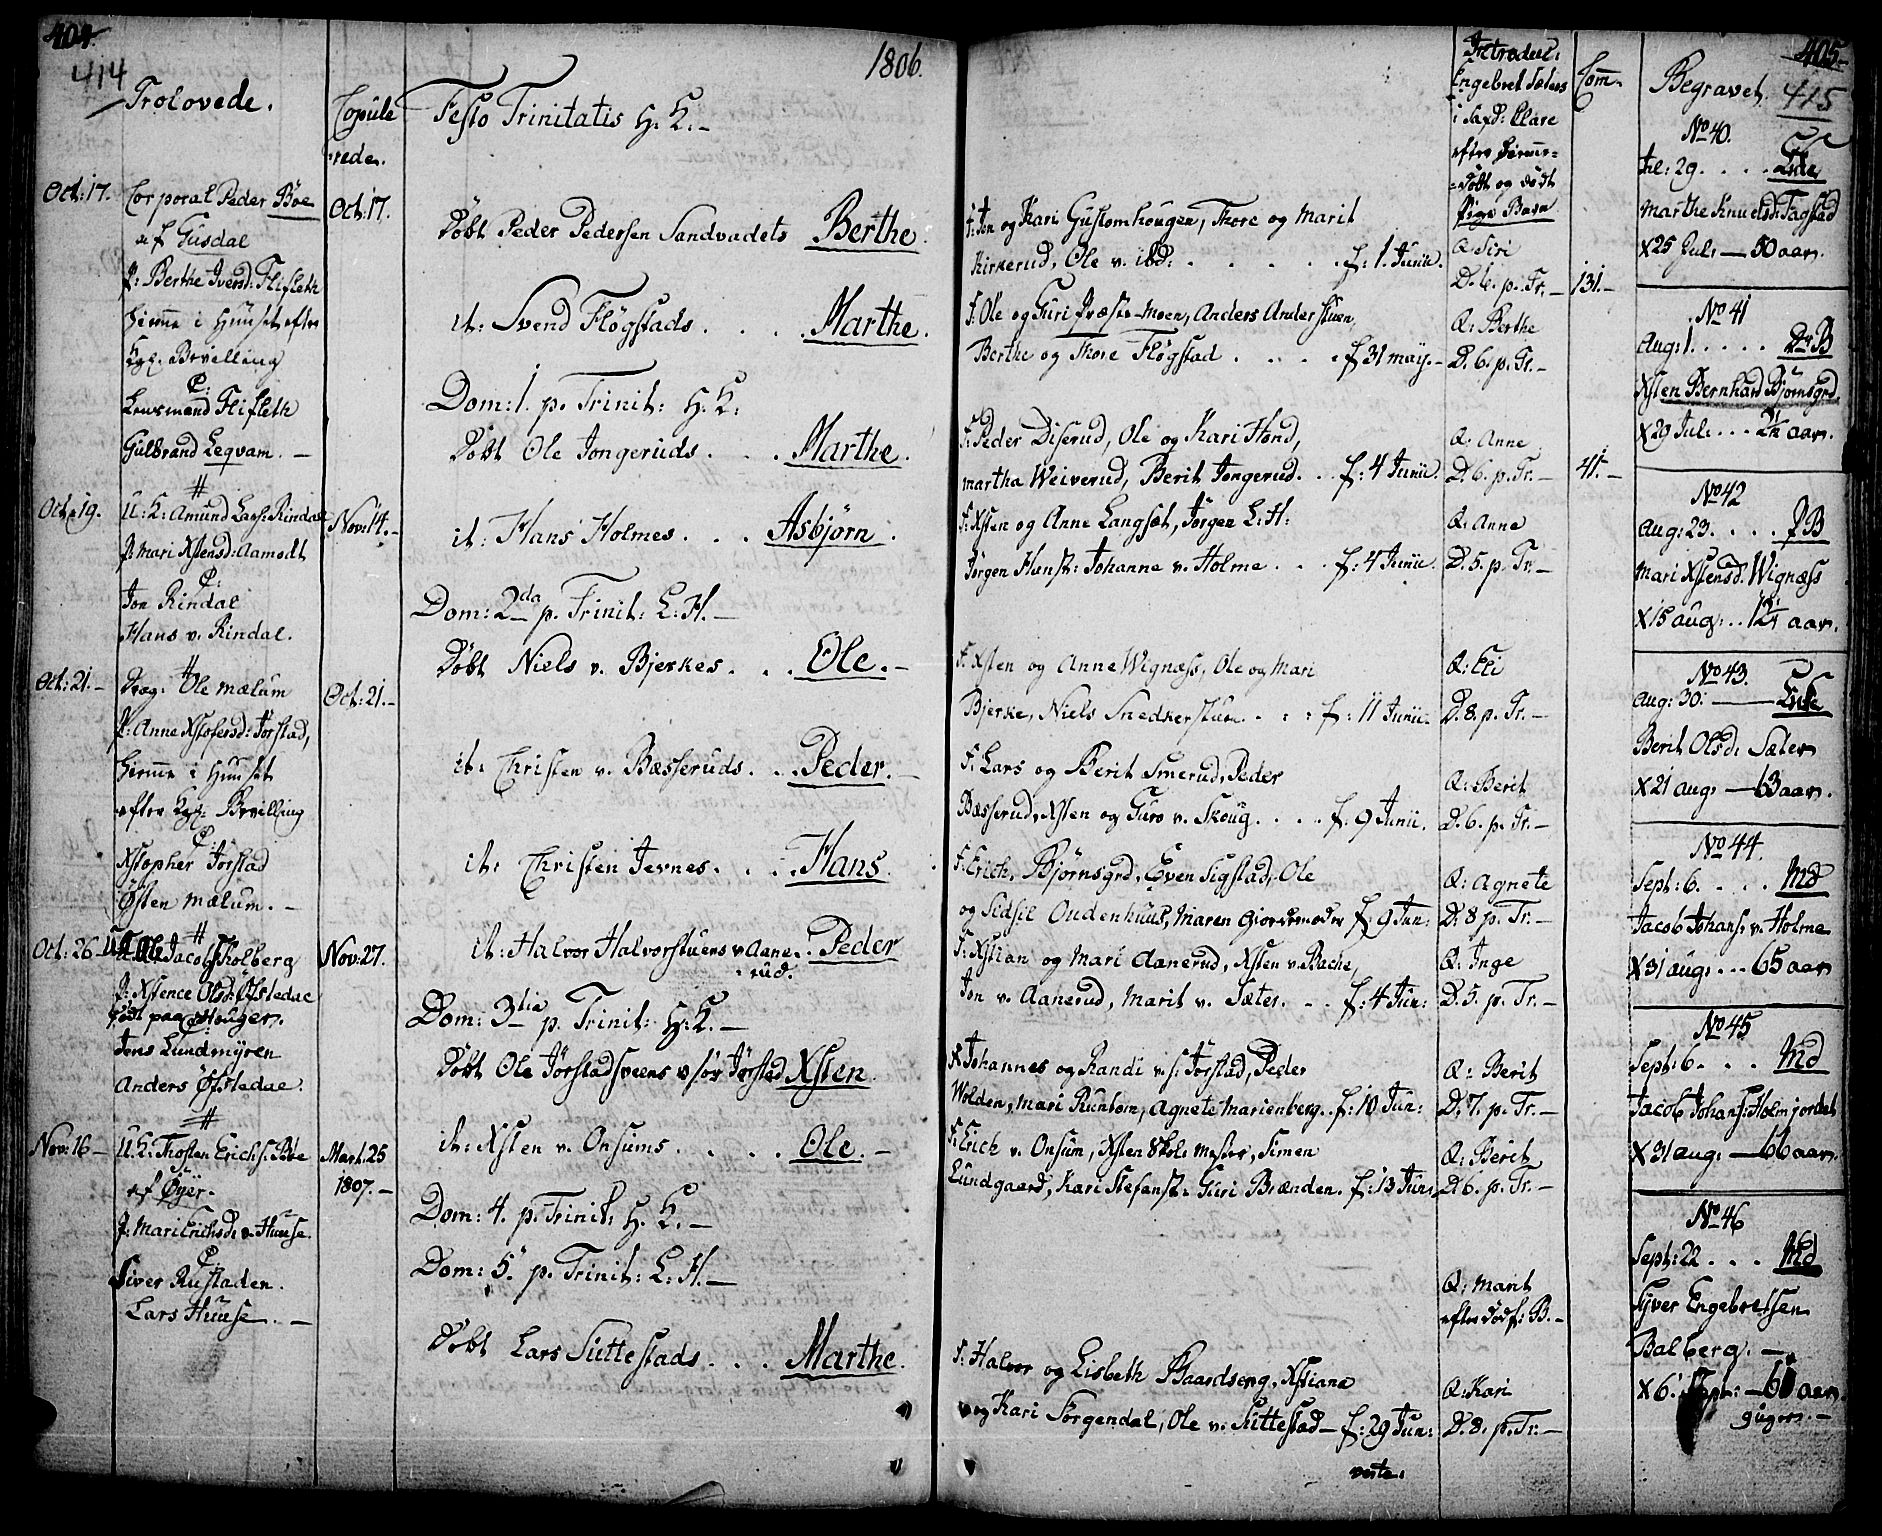 404.
414
1806.
Trolovede.
Copule
rede.
Oct: 17.
Corporal Peder Böe
af Gusdal
P: Berthe Iversd: Flifleth
hiemme i Huuset efter
Kgl: Bevilling
C:
Lensmand Flifleth
Gulbrand Leqvam. —
Oct: 17.
#
Oct: 19.
U: K: Amund Lars: Rindal
P: Mari Xstensd: Aamodt
C:
Jon Rindal
Hans v. Rindal.
Nov: 14. -
#
Oct: 21. -
Drag: Ole Mælum
P: Anne Xstofersd: Jörstad,
hiemme i Huuset
efter Kgl: Bevilling
C:
Xstopher Jörstad
Østen Mælum. -
Oct: 21. -
#
Oct: 26
Jacobs: Kolberg
P: Xstence Olsd: Øfstedal
födt paa Houger.
Jens Lundmyren
Anders Øfstedal.
Nov: 27.
#
Nov: 16 -
U: K: Thosten Erichs: Böe
af Øÿer.
P: Mari Erichsd: v. Huuse.
C:
Siver Rustaden.
Lars Huuse. -
Mart: 25
1807. -
Festo Trinitatis H: K. -
Döbt Peder Pedersen Sandvadets Berthe.
it: Svend Flögstads . . . Marthe.
Dom: 1. p. Trinit: H: K:
Döbt Ole Jongeruds . . . Marthe.
it: Hans Holmes . . . Asbjörn.
Dom: 2da p. Trinit: L: H. -
Döbt Niels v. Bjerkes . . . Ole. -
it: Christen v. Bæsseruds . . . Peder. -
it: Christen Jevnes . . . Hans.
it: Halvor Halvorstuens v Aane . . Peder
rud.
Dom: 3tia p. Trinit: H: K. -
Döbt Ole Jörstadsveens v sör Jörstad Xsten.
it: Xsten v. Onsums . . . . Ole. -
Dom: 4. p. Trinit: H. K. -
Dom: 5. p. Trinit: L: H. -
Döbt Lars Suttestads . . . Marthe.
F: Jon og Kari Gustomhougen, Thore og Marit
Kirkerud, Ole v. ibd: . . . . . f: 1. Junii.
F: Ole og Guri Præste-moen, Anders Anderstuen,
Berthe og Thore Flögstad . . . . f: 31 may. -
F: Peder Diserud, Ole og Kari Hond,
Martha Weiverud, Berit Jongerud. . . f: 4 Junii.
F: Xsten og Anne Langset, Jörgen L: H:
Jörgen Hunst: Johanne v. Holme . . . f: 4 Junii.
F: Xsten og Anne Wignæss, Ole og Mari
Bjerke, Niels Snedkerstuen . . : : f: 11 Junii.
F: Lars og Berit Smerud, Peder
Bæsserud, Xsten og Guro v. Skoug . . . . f: 9 Junii.
F: Erich, Björnsgrd, Even Sigstad, Ole
og Sidsil Oudenhuus, Maren Giordemoder f: 9 Jun:
F: Xstian og Mari Aanerud, Xsten v. Bache,
Jon v. Aanerud, Marit v. Sæter. . . f: 4 Jun:
F: Johannes og Randi v. s: Jörstad, Peder
Wolden, Mari Runtom, Agnete Marienberg. . f: 10 Jun:
F: Erich v. Onsum, Xsten Skolemester, Simen
Lundgaard, Kari Stefenst: Guri Brænden. f: 13 Jun:
F: Halvor og Lisbeth Baardseng, Xstiane
og Kari Sorgendal, Ole v. Suttestad - f: 29 Jun:
verte.
Introduc:
Engebret Sæters
i Faab: Clare
efter hiemme=
=döbt og död
Pige Barn
Q: Siri
D. 6. p. Tr. -
Q: Berthe
D. 6. p. Tr. -
Q: Anne
D. 6. p. Tr. -
Q: Anne
D. 5. p. Tr. -
Q: Eli
D. 8. p. Tr. -
Q: Berit
D. 6. p. Tr. -
Q: Agnete
D. 8 p. Tr. -
Q: Inge
D. 5. p. Tr. -
Q: Berit
D. 7. p. Tr. -
Q: Berit
D. 6. p. Tr. -
Q: Marit
efter dödf: B. -
Q: Kari
D. 8. p. Tr. -
Com.
131. -
41. -
405
Begravet. 415
No 40.
Jul: 29. . . .
Marthe Knudsd: Fagstad
X 25 Jul: - 50 aar.
No 41
Aug: 1. . . . . Dr B
Xsten Bernhard Björnsgrd.
X 29 Jul: . . . 2½ aar.
No 42
Aug: 23. . . . P B
Mari Xstensd. Wignæss
X 15 aug: . . 1½ aar.
No 43.
Aug: 30: -
Berit Olsd: Sæter
X 21 aug: - 63 aar.
No 44.
Sept: 6. . . . Md
Jacob Johans: v. Holme
X 31 aug: . . 65 aar
No 45
Sept: 6. . . Md
Jacob Johans: Holmjordet
X 31 aug: - 66 aar.
No 46
Sept: 22. . . Md
Syver Engebretsen
Balberg. -
X 6. Sept: - 61 aar.
9 uger. -